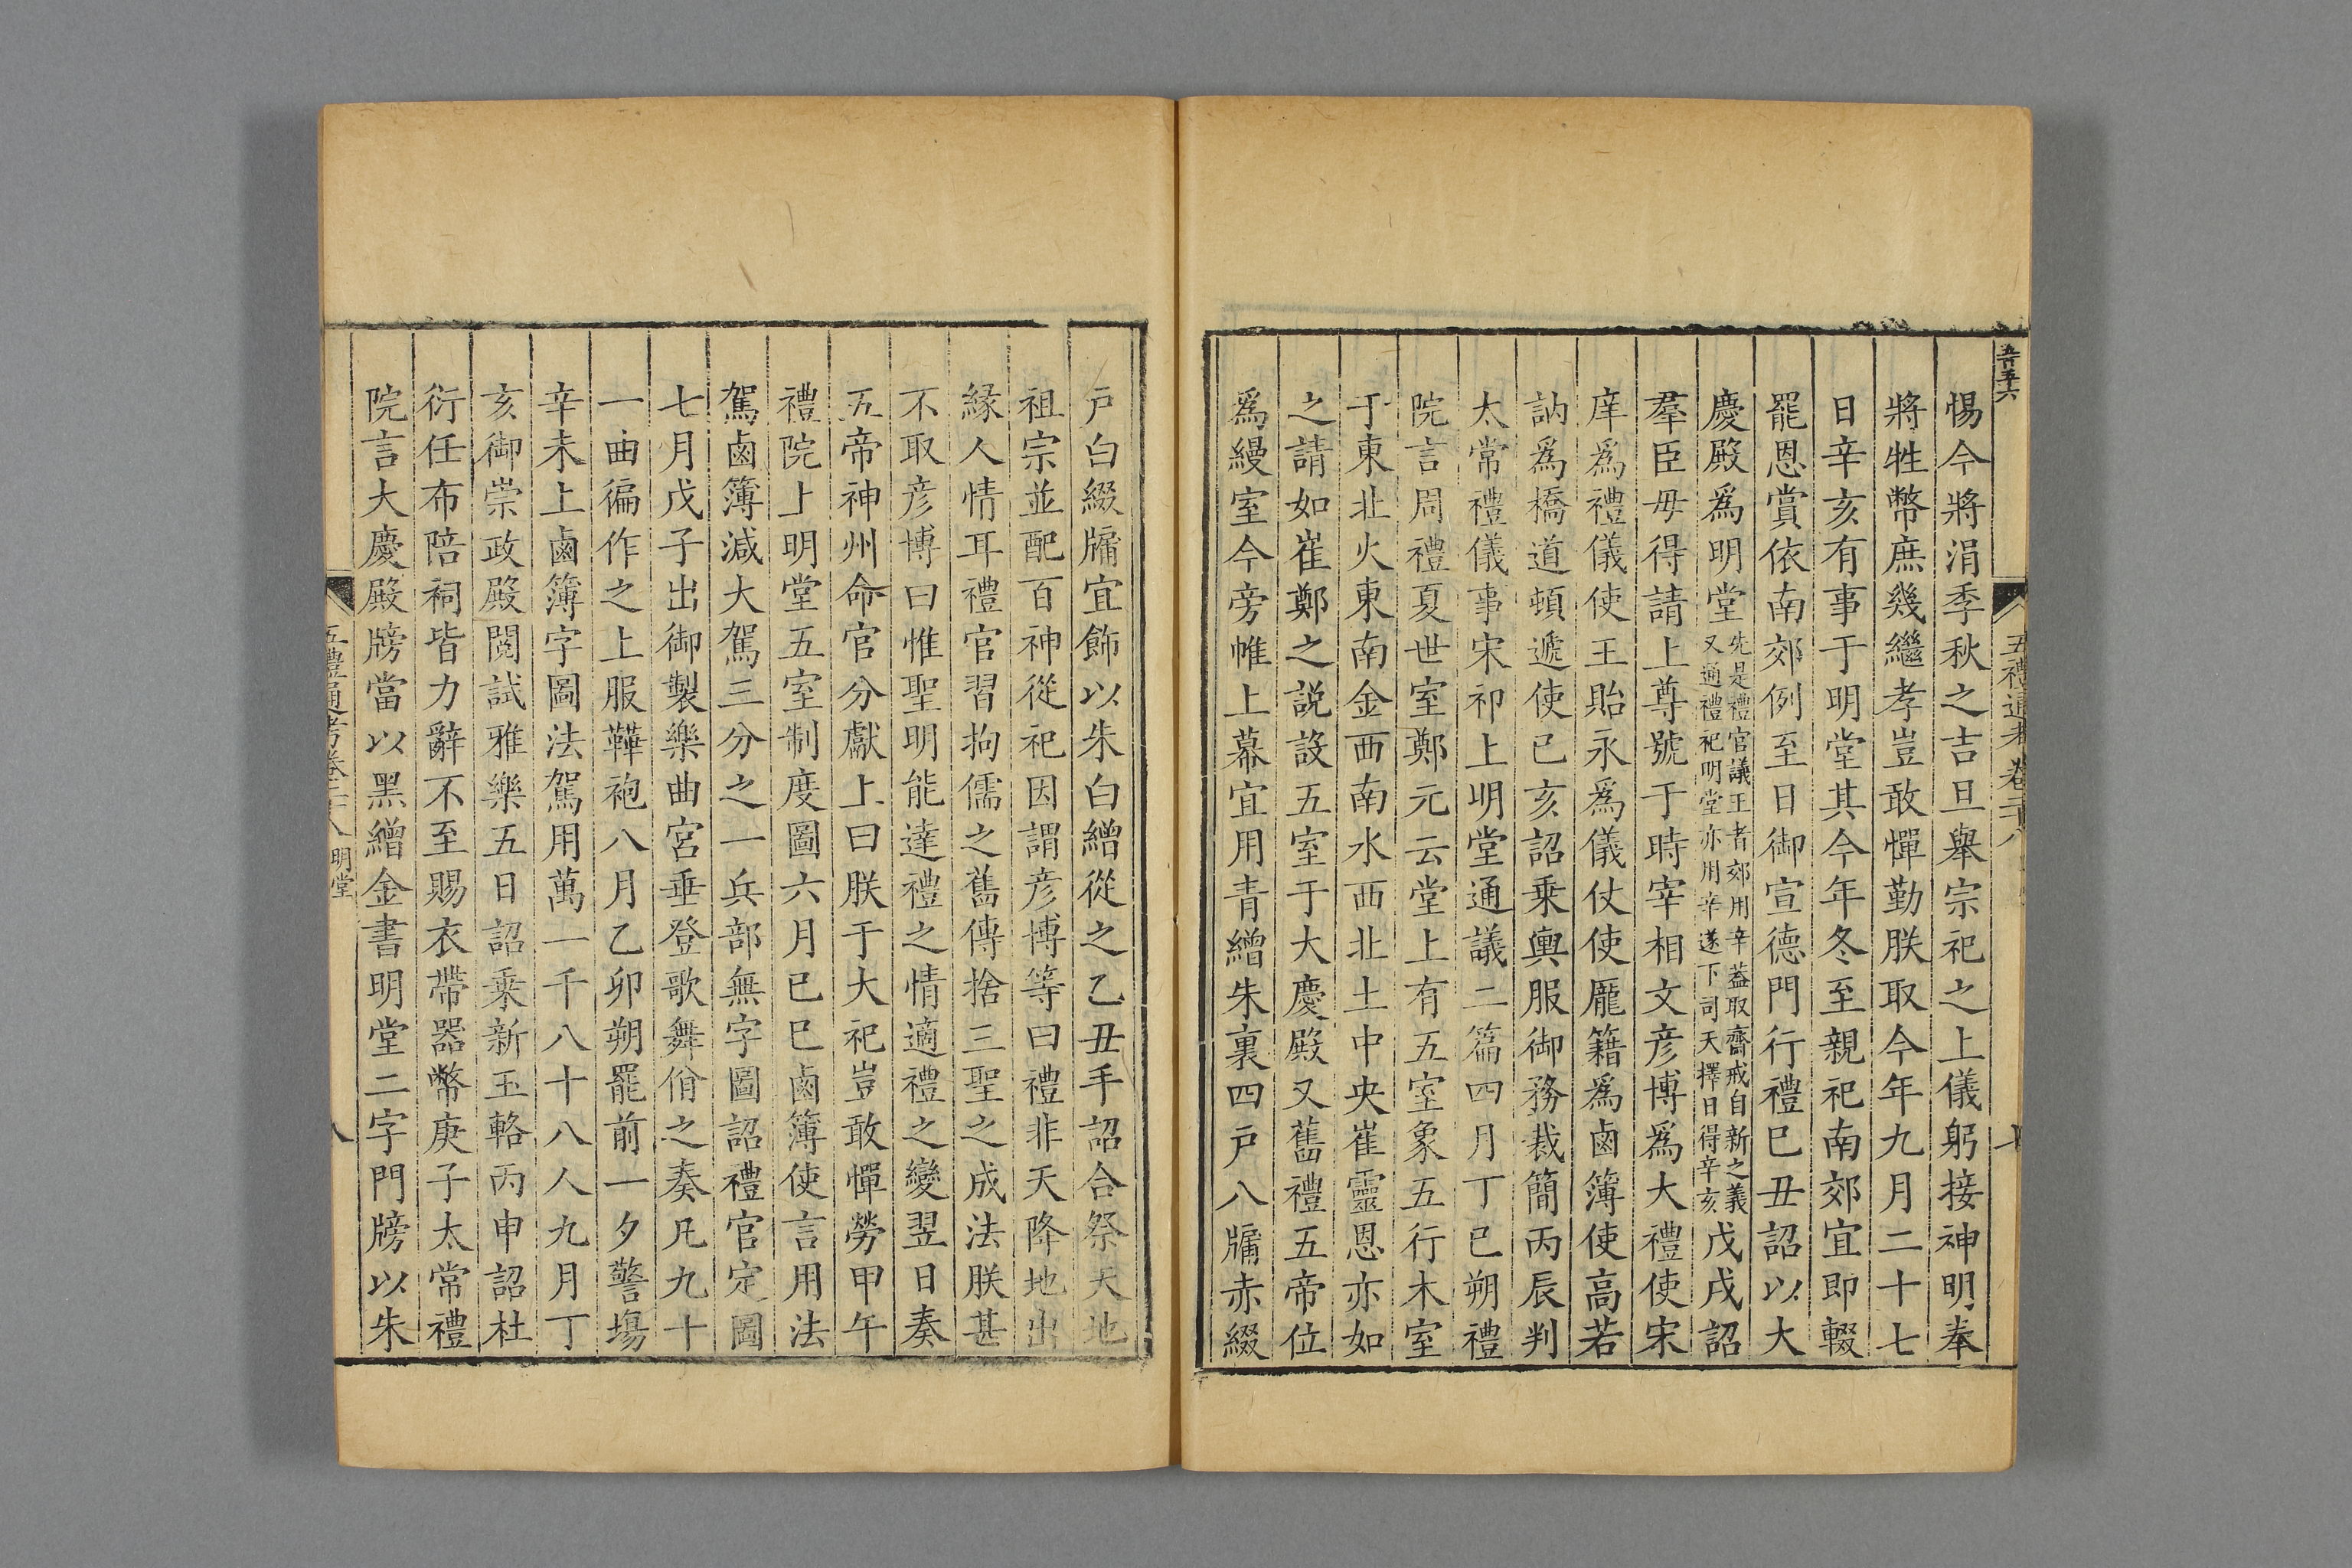 惕今將涓季秋之吉旦舉宗祀之上儀躬接神明奉
將牲幣庶幾繼孝豈敢憚勤朕取今年九月二十七
日辛亥有事于明堂其今年冬至親祀南郊宜即輟
罷恩賞依南郊例至日御宣德門行禮巳丑詔以大
慶殿爲明堂先是禮官議王者郊用辛葢取齋戒自新之義又通禮祀明堂亦用辛遂下司天擇日得辛亥戊戌詔
羣臣毋得請上尊號于時宰相文彦博爲大禮使宋
庠爲禮儀使王貽永爲儀仗使龎籍爲鹵簿使高若
訥爲橋道頓遞使已亥詔乗輿服御務裁簡丙辰判
太常禮儀事宋祁上明堂通議二篇四月丁巳朔禮
院言周禮夏世室鄭元云堂上有五室象五行木室
于東北火東南金西南水西北土中央崔靈恩亦如
之請如崔鄭之説設五室于大慶殿又舊禮五帝位
爲縵室今旁帷上幕宜用青繒朱裏四戸八牖赤綴
戸白綴牖宜飾以朱白繒從之乙丑手詔合祭天地
祖宗並配百神從祀因謂彦博等曰禮非天降地出
緣人情耳禮官習拘儒之舊傳捨三聖之成法朕甚
不取彦博曰惟聖明能達禮之情適禮之變翌日奏
五帝神州命官分獻上曰朕于大祀豈敢憚勞甲午
禮院上明堂五室制度圖六月已巳鹵簿使言用法
駕鹵簿減大駕三分之一兵部無字圖詔禮官定圖
七月戊子出御製樂曲宮垂登歌舞佾之奏凡九十
一曲徧作之上服鞾袍八月乙卯朔罷前一夕警場
辛未上鹵簿字圖法駕用萬一千八十八人九月丁
亥御崇政殿閲試雅樂五日詔乗新玉輅丙申詔杜
衍任布陪祠皆力辭不至賜衣帶器幣庚子太常禮
院言大慶殿牓當以黑繒金書明堂二字門牓以朱
五禮通考卷二十八 明堂
八